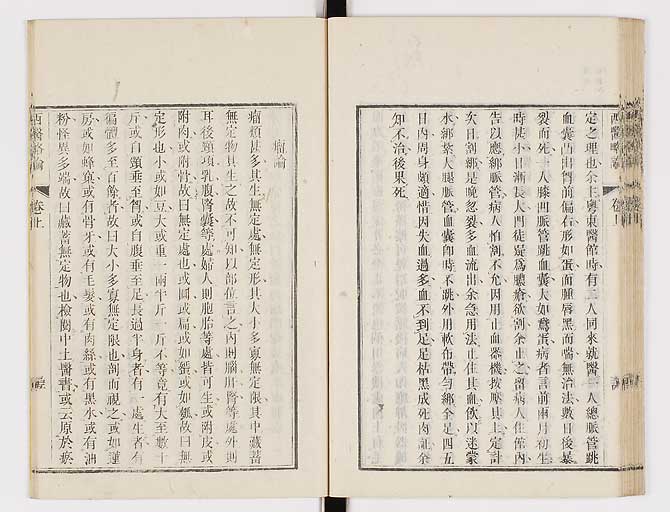 定之理也余主粵東醫館時有二人同來就醫一人總脈管跳
血囊凸出胷前偏右形如蛋而腫唇黑而喘無治法數日後暴
裂而死一人膝凹脈管跳血囊大如鵞蛋病者言前兩月初生
時甚小日漸長大門徒疑爲膿瘡欲割余止之留病人住館內
告以應綁脈管病人怕割不允因用止血器機按壓其上定計
次日割綁是晚忽裂多血流出余急用法止住其血飲以迷蒙
水綁紥大腿脈管血囊卽時不跳外用軟布帶勻綁全足四五
日內周身頗適惜因失血過多血不到足足枯黑成死肉証余
知不治後果死
瘤論
瘤類甚多其生無定處無定形其大小多寡無定限其中藏蓄
無定物其生之故不可知以部位言之內則腦出腎等處外則
耳後頸項乳腹腎囊等處婦人則胞胎等處皆可生或附皮或
附肉或附骨故曰無定處也或圓或扁或如蛋或如瓠故曰無
定形也小或如豆大或重一兩半斤一斤不等竟有大至數十
斤或自頸垂至胷或自腹垂至足長過半身者有一處生者有
徧體多至百餘者故曰大小多寡無定限也剖而視之或如蓮
房或如蜂窠或有骨牙或有毛髮或有肉絲或有黑水或有油
粉怪異多端故曰藏蓄無定物也檢閱中土醫書或云原於瘀
西醫略論
卷上